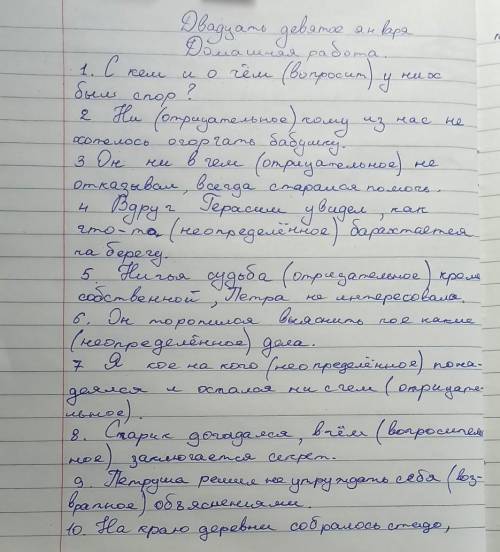 Двадцать девятое января
Домашняя работа.
1. С кем и о чём (вопросит) у них
был спор?
2 Ни (отрицательное) кому из нас не
хотелось огорчать бабушку.
3 Он ни в чем (отрицательное) не
отказывал, всегда старался помочь.
4 Вдруг Герасим увидел, как
что-то (неопределённое) барахтается
на берегу.
5. Ничья судьба (отрицательное) кроме
собственной, Петра не интересовала.
6. Он торопился выяснить кое какие
(неопределённое) дела.
7 Я кое на кого (неопределённое) пона-
деялся и остался ни с чем (отрицате-
льное).
8. Старик догадался, в чём (вопросител
ное) заключается секрет.
9. Петруша решил не утруждать себя (воз-
вратное) объяснениями.
10. На краю деревни собралось стадо,